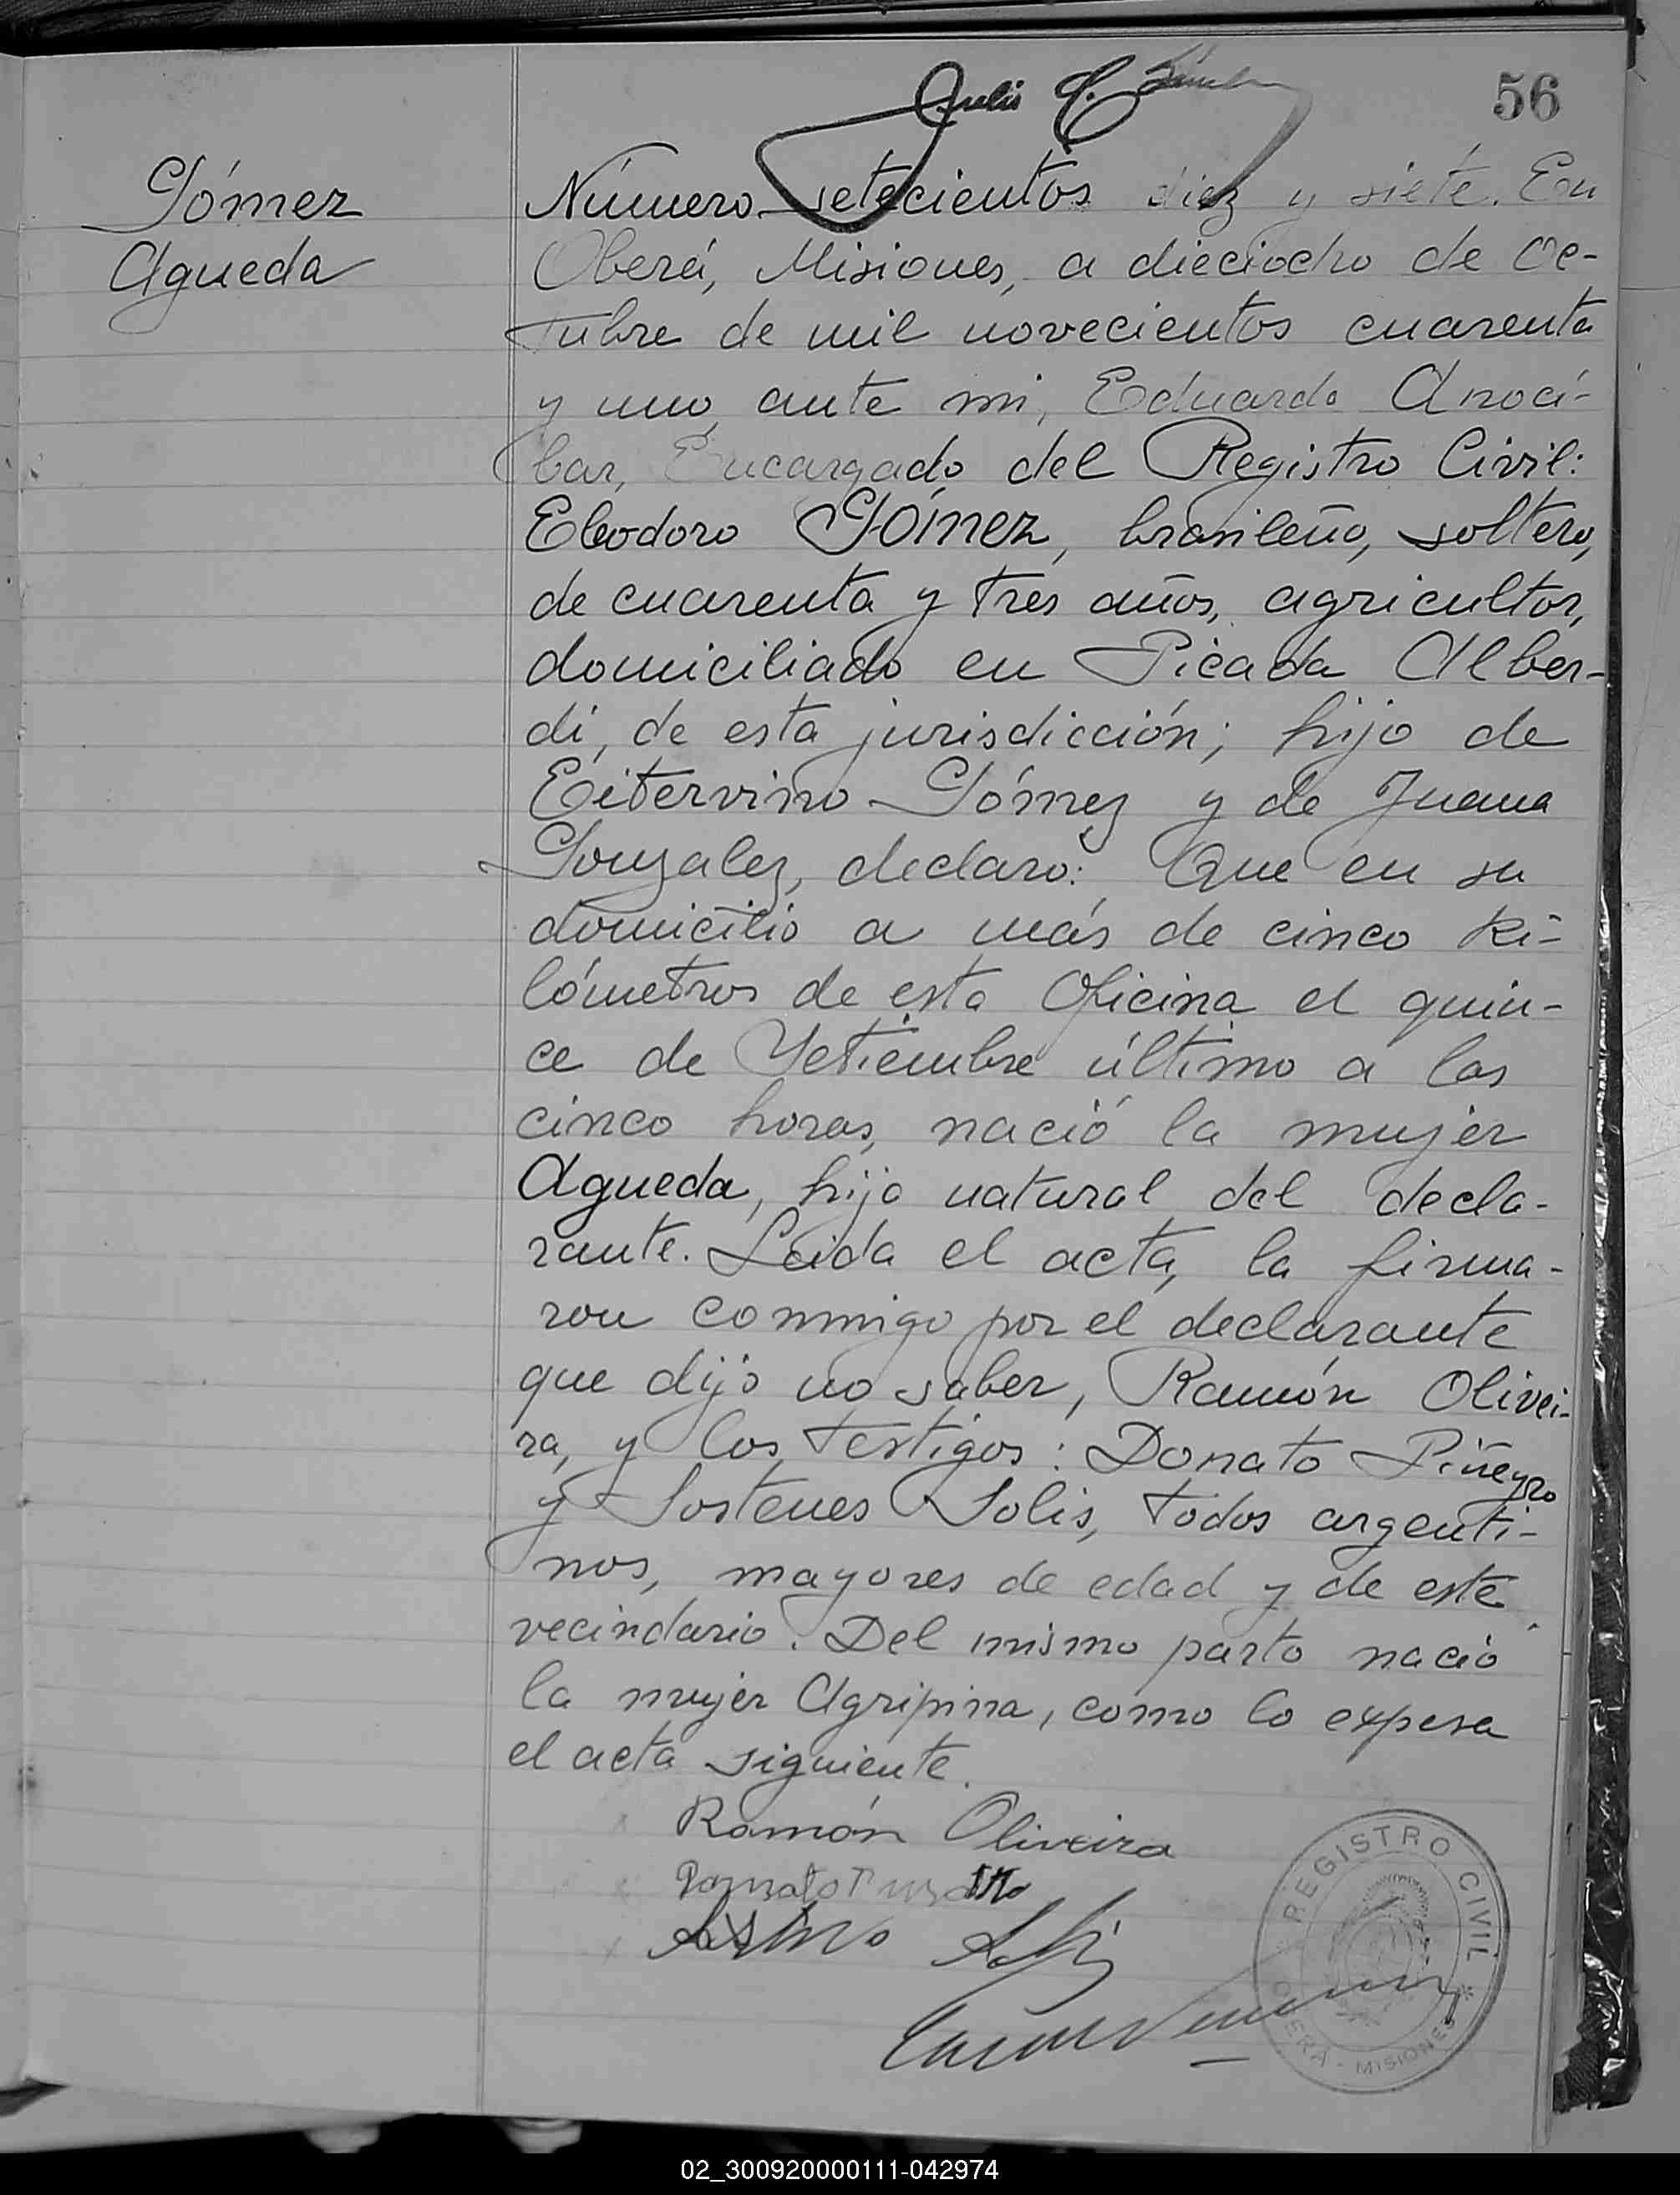 56
Julio C.
Gómez
Agueda
Número setecientos diez y siete. En
Oberá, Misiones, a dieciocho de Oc-
tubre de mil novecientos cuarenta
y uno, ante mi, Eduardo Anocí-
bar, Encargado del Registro Civil:
Eleodoro Gómez, brasileño, soltero,
de cuarenta y tres años, agricultor,
domiciliado en Picada Alber-
di, de esta jurisdicción; hijo de
Eitervino Gómez y de Juana
Gonzalez, declaro: Que en su
domicilio a más de cinco ki-
lómetros de esta Oficina el quin-
ce de Setiembre último a las
cinco horas, nació la mujer
Agueda, hija natural del decla-
rante. Leida el acta, la firma-
ron conmigo por el declarante
que dijo no saber, Ramón Olivei-
ra, y los testigos: Donato Piñeyro
y Sostenes Solis, todos argenti-
nos, mayores de edad y de este
vecindario. Del mismo parto nació
la mujer Agripina, como lo expesa
el acta siguiente.
Ramón Oliveira
REGISTRO CIVIL
OBERÁ - MISIONES
02_300920000111-042974